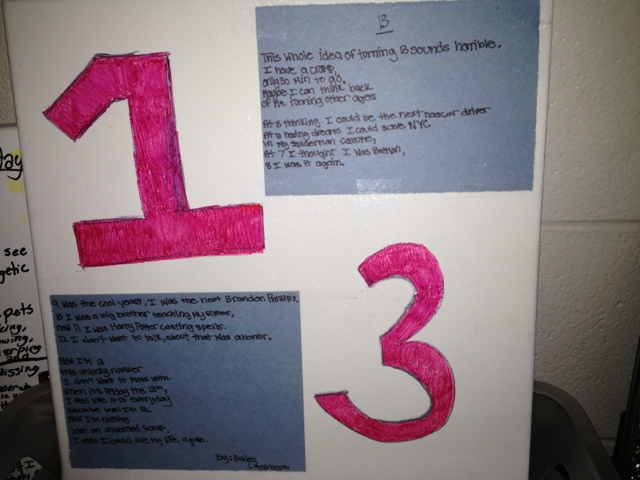 1
3
13
This whole idea of turning 13 sounds horrible.
I have a cramp,
only 30 min to go.
Maybe I can think back
of me turning other ages
At 5 thinking I could be the next nascar driver
At 6 having dreams I could save NYC
in my spiderman costume,
At 7 I thought I was Batman,
8 I was it again.
9 was the cool years, I was the next Brandon Phillips,
10 I was a big brother teaching my sister,
now 11 I was Harry Potter casting spells.
12 I don't want to talk about that was a horror.
Now I'm 13
this unlucky number
I don't want to mess with
when it's Friday the 13th,
I feel like it's everyday
because until I'm 18,
Now I'm nothing
Just an unwanted scrap,
I wish I could live my life again.
By: Bailey
see
getic
pets